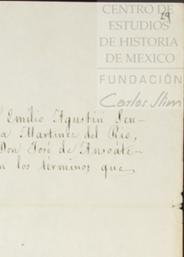 CENTRO DE
ESTUDIOS
DE HISTORIA
DE MEXICO
FUNDACIÓN
Carlos Slim
29
Emilio Agustin Ten-
a Martinez del Rio,
Don José de Ansoáte-
n los términos que